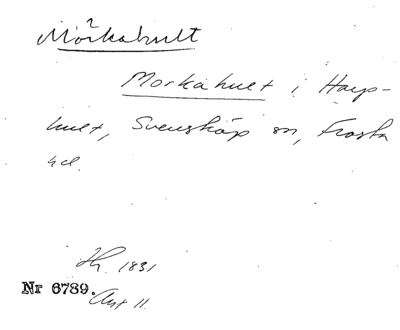 Mörkahult
Morkahult i Harp-
hult, Svensköp sn, Frosta
hd.
Hh. 1831
Nr 6789. Avt 11.